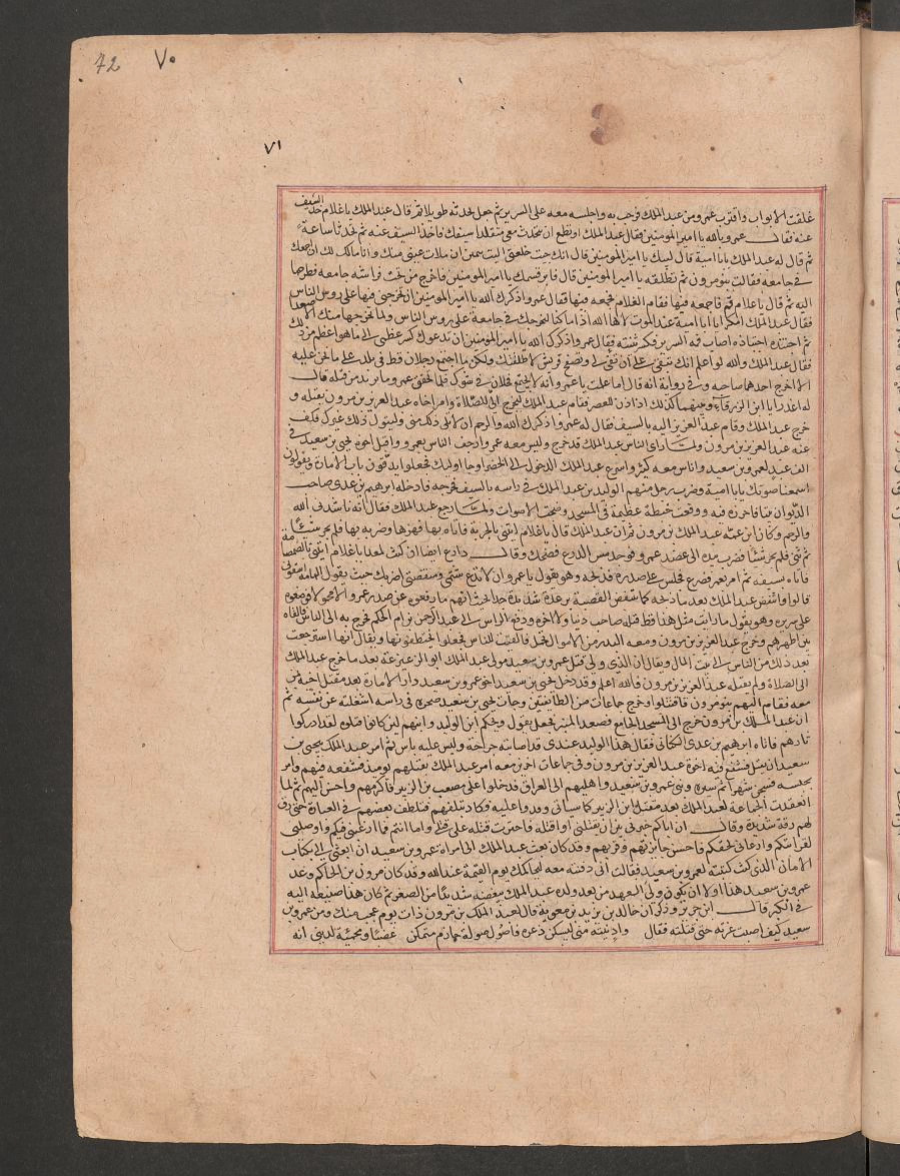 42 ٧٠
٧١
غلقت الابواب واقترب عمرو من عبد الملك فرحب به واجلسه معه على السرير ثم جعل يحدثه طويلا ثم قال عبد الملك يا غلام خذ السيف
عنه فقال عمرو يالله يا امير المومنين فقال عبد الملك او تطمع ان تتحدث معي متقلدا سيفك فاخذ السيف عنه ثم تحدثا ساعة
ثم قال له عبد الملك يابا امية قال لبيك يا امير المومنين قال انك حيث خلعتني اليت بيمين ان ملات عيني منك وانا مالك لك ان اجمعك
في جامعه فقالت بنو مرون ثم تطلقه يا امير المومنين قال فابر قسمك يا امير المومنين فاخرج من تحت فراشه جامعه فطرحها
اليه ثم قال يا غلام قم فاجمعه فيها فقام الغلام فجمعه فيها فقال عمرو اذكرك الله يا امير المومنين ان تخرجني فيها على روس الناس
فقال عبد الملك امكرا يابا امية عند الموت لاها الله اذا ما كنا لنخرجك في جامعة على روس الناس ولما نخرجها منك الا صعدا
ثم اجتبذه اجتباذه اصاب فمه السرير فكسر ثنيته فقال عمرو اذكرك الله يا امير المومنين ان تدعوك كسر عظمي الى ما هو اعظم من ذلك
فقال عبد الملك والله لو اعلم انك تبقي على ان تقي لي وتصلح قريش لاطلقتك ولكن ما اجتمع رجلان قط في بلد على ما نحن عليه
الا اخرج احدهما صاحبه وفي رواية انه قال اما علمت يا عمرو انه لا يجتمع فحلان في شوك فلما تحقق عمرو ما يريد من قتله قال
له اغدر يا ابن الزرقاء وبينما كذلك اذ اذن للعصر فقام عبد الملك ليخرج الى الصلاة وامر اخاه عبد العزيز بن مرون بقتله و
خرج عبد الملك وقام عبد العزيز اليه بالسيف فقال له عمرو اذكرك الله والرحم ان لا تلي ذلك مني وليتول ذلك غيرك فكف
عنه عبد العزيز بن مرون ولما راى الناس عبد الملك قد خرج وليس معه عمرو ارجف الناس بعمرو واقبل اخوه يحيى بن سعيد في
الف عبد لعمرو بن سعيد واناس معه كثير واسرع عبد الملك الدخول الى الخضرا وجا اوليك فجعلوا يدقون باب الامارة ويقولون
اسمعنا صوتك يابا امية وضرب رجل منهم الوليد بن عبد الملك في راسه بالسيف فجرحه فادخله ابرهيم بن عدي صاحب
الديوان بيتا فاحرزه فيه ووقعت خبطة عظيمة في المسجد وضجت الاصوات ولما رجع عبد الملك فقال انه ناشدني الله
والرحم وكان ابن عمته عبد الملك بن مرون قران عبد الملك قال يا غلام ايتني بالحربة فاتاه بها فهزها وضربه بها فلم تحر شيئا
ثم ثنى فلم تحر شيئا فضرب بيده الى عضد عمرو فوجد مس الدرع فضحك وقال دارع ايضا ان كنت لمعدا يا غلام ايتني بالصمصامة
فاتاه بسيفه ثم امر بعمرو فصرع فجلس على صدره فذبحه وهو يقول يا عمرو ان لا تدع شتمي ومنقصتي اضربك حيث تقول الهامة اسقوني
قالوا وانتفض عبد الملك بعد ما ذبحه كما تنتفض القصبة برعدة شديدة جدا بحيث انهم ما رفعوه عن صدر عمرو الا محمولا فوضعوه
على سريره وهو يقول ما رايت مثل هذا قط قتله صاحب دنيا ولا اخره ودفع الراس الى عبد الرحمن بن ام الحكم فخرج به الى الناس فالقاه
بين اظهرهم وخرج عبد العزيز بن مرون ومعه البدر من الاموال تحمل فالقيت للناس فجعلوا يختطفونها ويقال انها استرجعت
بعد ذلك من الناس الى بيت المال ويقال ان الذي ولي قتل عمرو بن سعيد مولى عبد الملك ابو الزعيزعة بعد ما خرج عبد الملك
الى الصلاة ولم يقتله عبد العزيز بن مرون فالله اعلم وقد دخل يحيى بن سعيد اخو عمرو بن سعيد دار الامارة بعد مقتل اخيه بمن
معه فقام اليهم بنو مرون فاقتتلوا وجرح جماعات من الطايفتين وجات يحيى بن سعيد صخرة في راسه اشغلته عن نفسه ثم
ان عبد الملك بن مرون خرج الى المسجد الجامع فصعد المنبر فجعل يقول ويحكم اين الوليد وابيهم لين كانوا قتلوه لقد ادركوا
ثارهم فاتاه ابرهيم بن عدي الكناني فقال هذا الوليد عندي قد اصابته جراحة وليس عليه باس ثم امر عبد الملك بيحيى بن
سعيد ان يقتل فتشفع فيه اخوه عبد العزيز بن مرون وفي جماعات اخر معه امر عبد الملك بقتلهم يوميذ فشفعه فيهم وامر
بحبسه فسجن شهرا ثم سيره وبني عمرو بن سعيد واهليهم الى العراق فدخلوا على مصعب بن الزبير فاكرمهم واحسن اليهم ثم لما
انعقدت الجماعة لعبد الملك بعد مقتل ابن الزبير كما سياتي وفدوا عليه فكاد يقتلهم فتلطف بعضهم في العبارة حتى رق
لهم رقة شديدة وقال ان اباكم خيرني بين ان يقتلني او اقتله فاخترت قتله على قتلي واما انتم فما ارغبني فيكم واوصلني
لقرابتكم وارعاني لحقكم فاحسن جايزتهم وقربهم وقد كان بعث عبد الملك الى امراة عمرو بن سعيد ان ابعثي الي بكتاب
الامان الذي كنت كتبته لعمرو بن سعيد فقالت اني دفنته معه ليحاكمك يوم القيمة عند الله وقد كان مرون بن الحاكم وعد
عمرو بن سعيد هذا اولا ان يكون ولي العهد من بعد ولده عبد الملك وبغضه شديدا من الصغر ثم كان هذا صنيعه اليه
في الكبر قال ابن جرير وذكر ان خالد بن يزيد بن معوية قال لعبد الملك بن مرون ذات يوم عجب منك ومن عمرو بن
سعيد كيف اصبت غرته حتى قتلته فقال وادنيته مني ليسكن ذعره فاصول صولة حازم متمكن غضبا ومحمية لديني انه